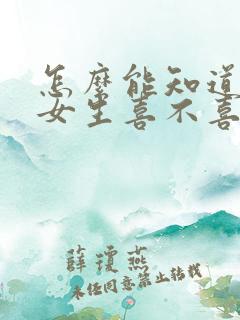 怎麼能知道
女生喜不喜
薛瓊燕
未经同意禁止转载